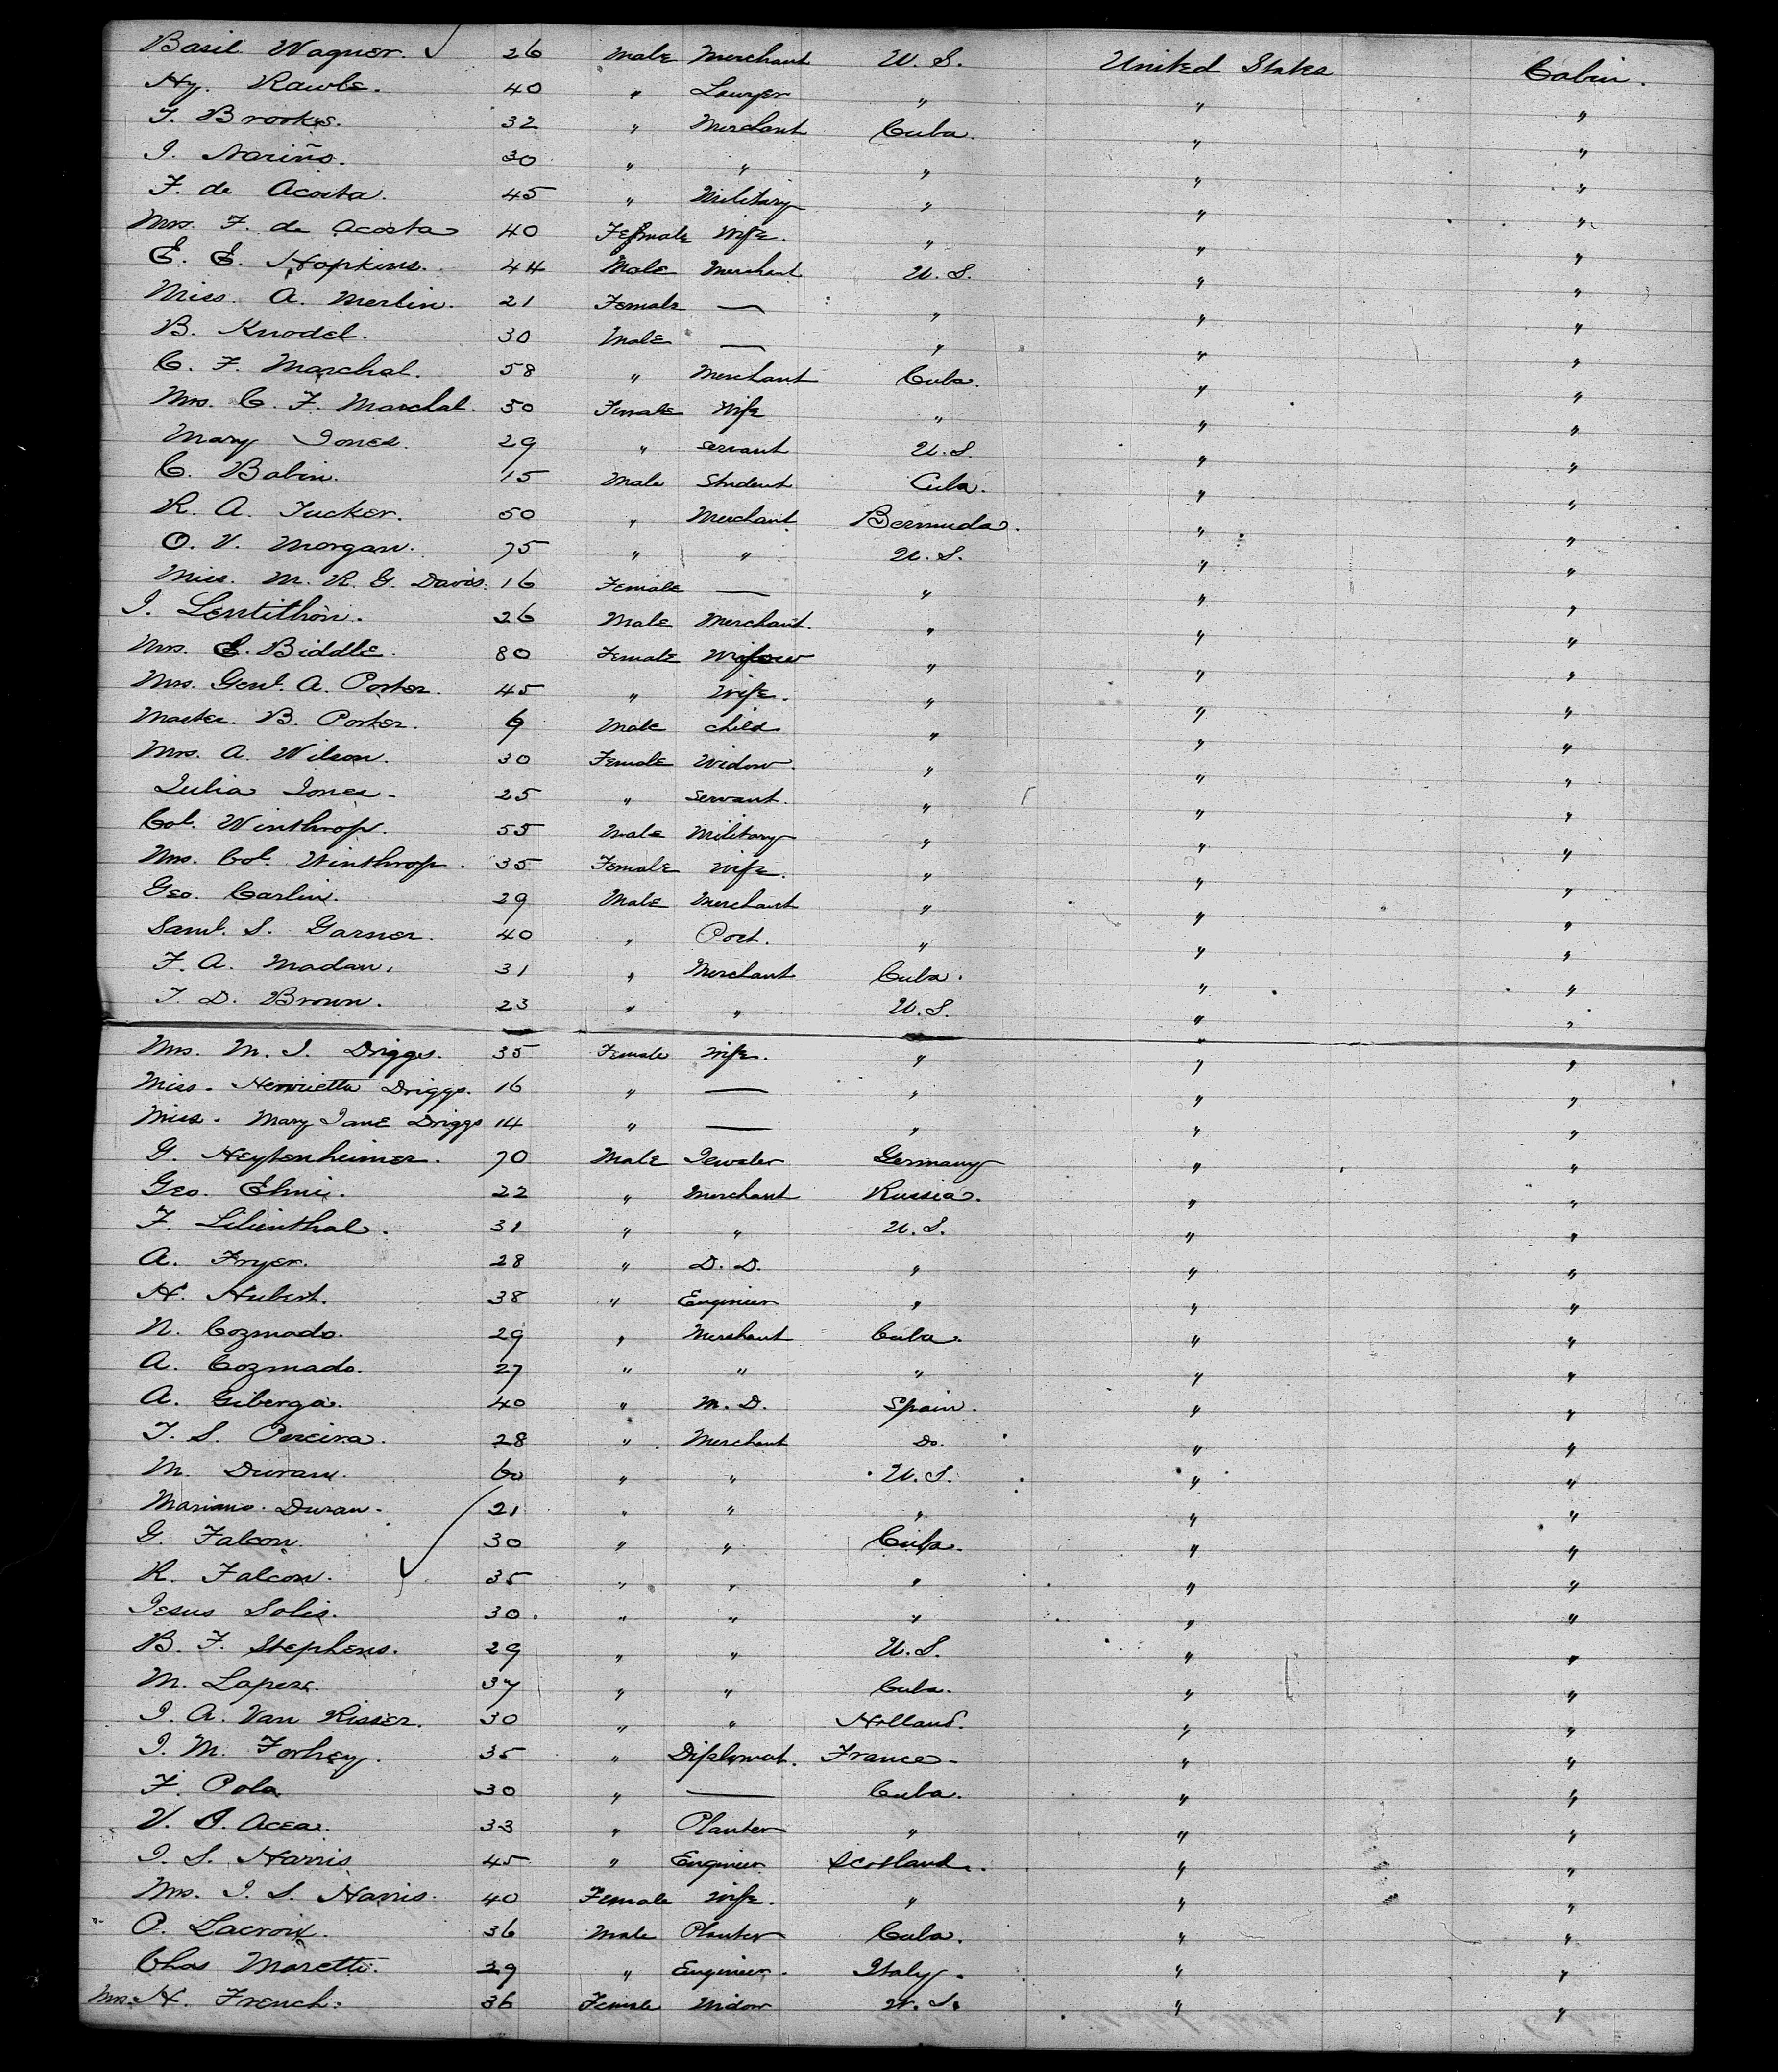 Basil Wagner. 26 Male Merchant U.S. United States Cabin.
Hy. Rawle. 40 " Lawyer " " "
F. Brooks. 32 " Merchant Cuba. " "
I. Nariño. 30 " " " " "
F. de Acosta. 45 " Military " " "
Mrs. F. de Acosta 40 Female Wife. " " "
E. E. Hopkins. 44 Male Merchant U.S. " "
Miss. A. Merlin. 21 Female — " " "
B. Knodel. 30 Male — " " "
C. F. Marchal. 58 " Merchant Cuba. " "
Mrs. C. F. Marchal. 50 Female Wife " " "
Mary Jones. 29 " Servant U.S. " "
C. Babin. 15 Male Student Cuba. " "
R. A. Tucker. 50 " Merchant Bermuda. " "
O. V. Morgan. 75 " " U.S. " "
Miss. M. R. G. Davis. 16 Female — " " "
J. Lentithon. 26 Male Merchant. " " "
Mrs. E. Biddle. 80 Female Widow " " "
Mrs. Genl. A. Porter. 45 " Wife. " " "
Master. B. Porter. Male Child " " "
Mrs. A. Wilson. 30 Female Widow. " " "
Julia Jones. 25 " Servant. " " "
Col. Winthrop. 55 Male Military " " "
Mrs. Col. Winthrop. 35 Female Wife. " " "
Geo. Carlin. 29 Male Merchant " " "
Saml. S. Garner. 40 " Poet. " " "
F. A. Madan. 31 " Merchant Cuba. " "
T. D. Brown. 23 " " U.S. " "
Mrs. M. J. Driggs. 35 Female Wife. " " "
Miss. Henrietta Driggs. 16 " — " " "
Miss. Mary Jane Driggs 14 " — " " "
G. Heytenheimer. 70 Male Jeweler Germany " "
Geo. Elmi. 22 " Merchant Russia. " "
F. Lilienthal. 31 " " U.S. " "
A. Fryer. 28 " D. D. " " "
H. Hubert. 38 " Engineer " " "
N. Cozmado. 29 " Merchant Cuba. " "
A. Cozmado. 27 " " " " "
A. Giberga. 40 " M. D. Spain. " "
T. S. Pereira. 28 " Merchant Do. " "
M. Duran. 60 " " U.S. " "
Mariano. Duran. 21 " " " " "
G. Falcon. 30 " " Cuba. " "
R. Falcon. 35 " " " " "
Jesus Solis. 30. " " " " "
B. F. Stephens. 29 " " U.S. " "
M. Lopez. 37 " " Cuba. " "
J. A. Van Risser. 30 " " Holland. " "
J. M. Forhey. 35 " Diplomat. France. " "
F. Pola 30 " — Cuba. " "
V. J. Acea. 33 " Planter " " "
J. S. Harris 45 " Engineer. Scotland. " "
Mrs. J. S. Harris. 40 Female Wife. " " "
P. Lacroix. 36 Male Planter Cuba. " "
Chas Moretti. 29 " Engineer. Italy. " "
Mrs. H. French. 36 Female Widow U.S. " "